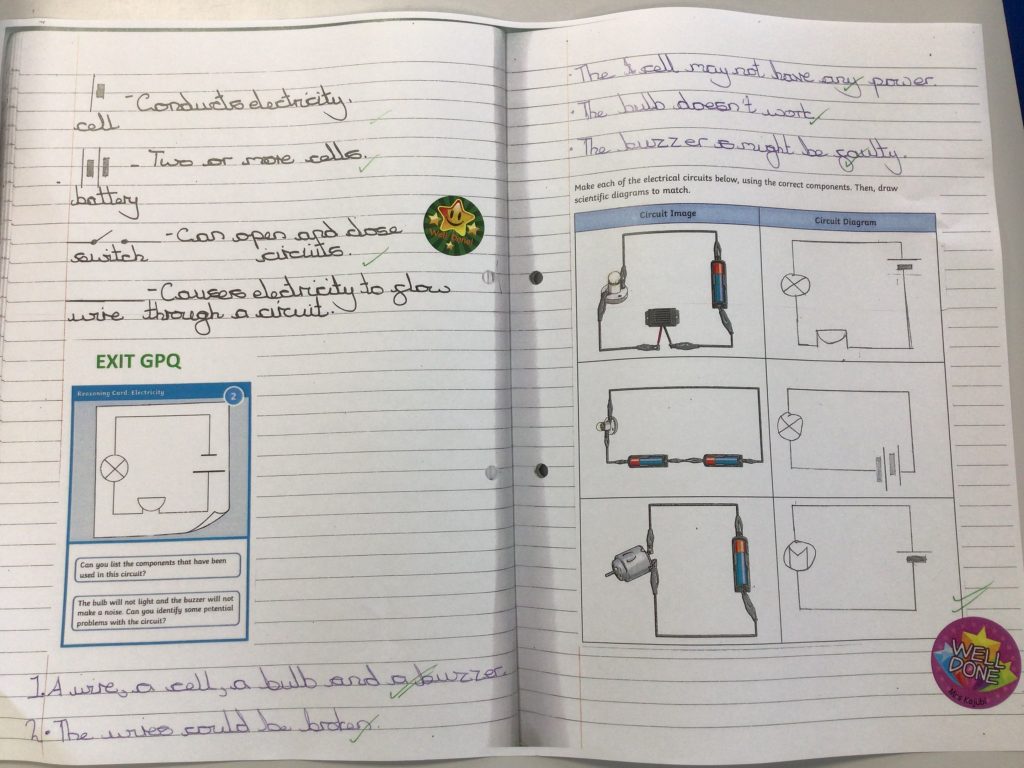 -Conducts electricity.
cell
- Two or more cells.
battery
-Can open and close
switch circuits.
-Causes electricity to flow
wire through a circuit.
EXIT GPQ
Reasoning Card: Electricity 2
Can you list the components that have been
used in this circuit?
The bulb will not light and the buzzer will not
make a noise. Can you identify some potential
problems with the circuit?
1. A wire, a cell, a bulb and a buzzer.
2. • The wires could be broken.
• The cell may not have any power.
• The bulb doesn't work.
• The buzzer might be faulty.
Make each of the electrical circuits below, using the correct components. Then, draw
scientific diagrams to match.
Circuit Image Circuit Diagram
M
WELL
DONE
Mrs Kajubi